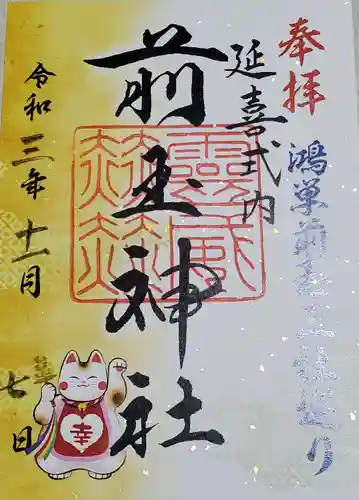 奉拝
鴻巣前玉
巡り
延喜式内
前玉神社
靈威
赫赫
令和三年十一月
七日
幸